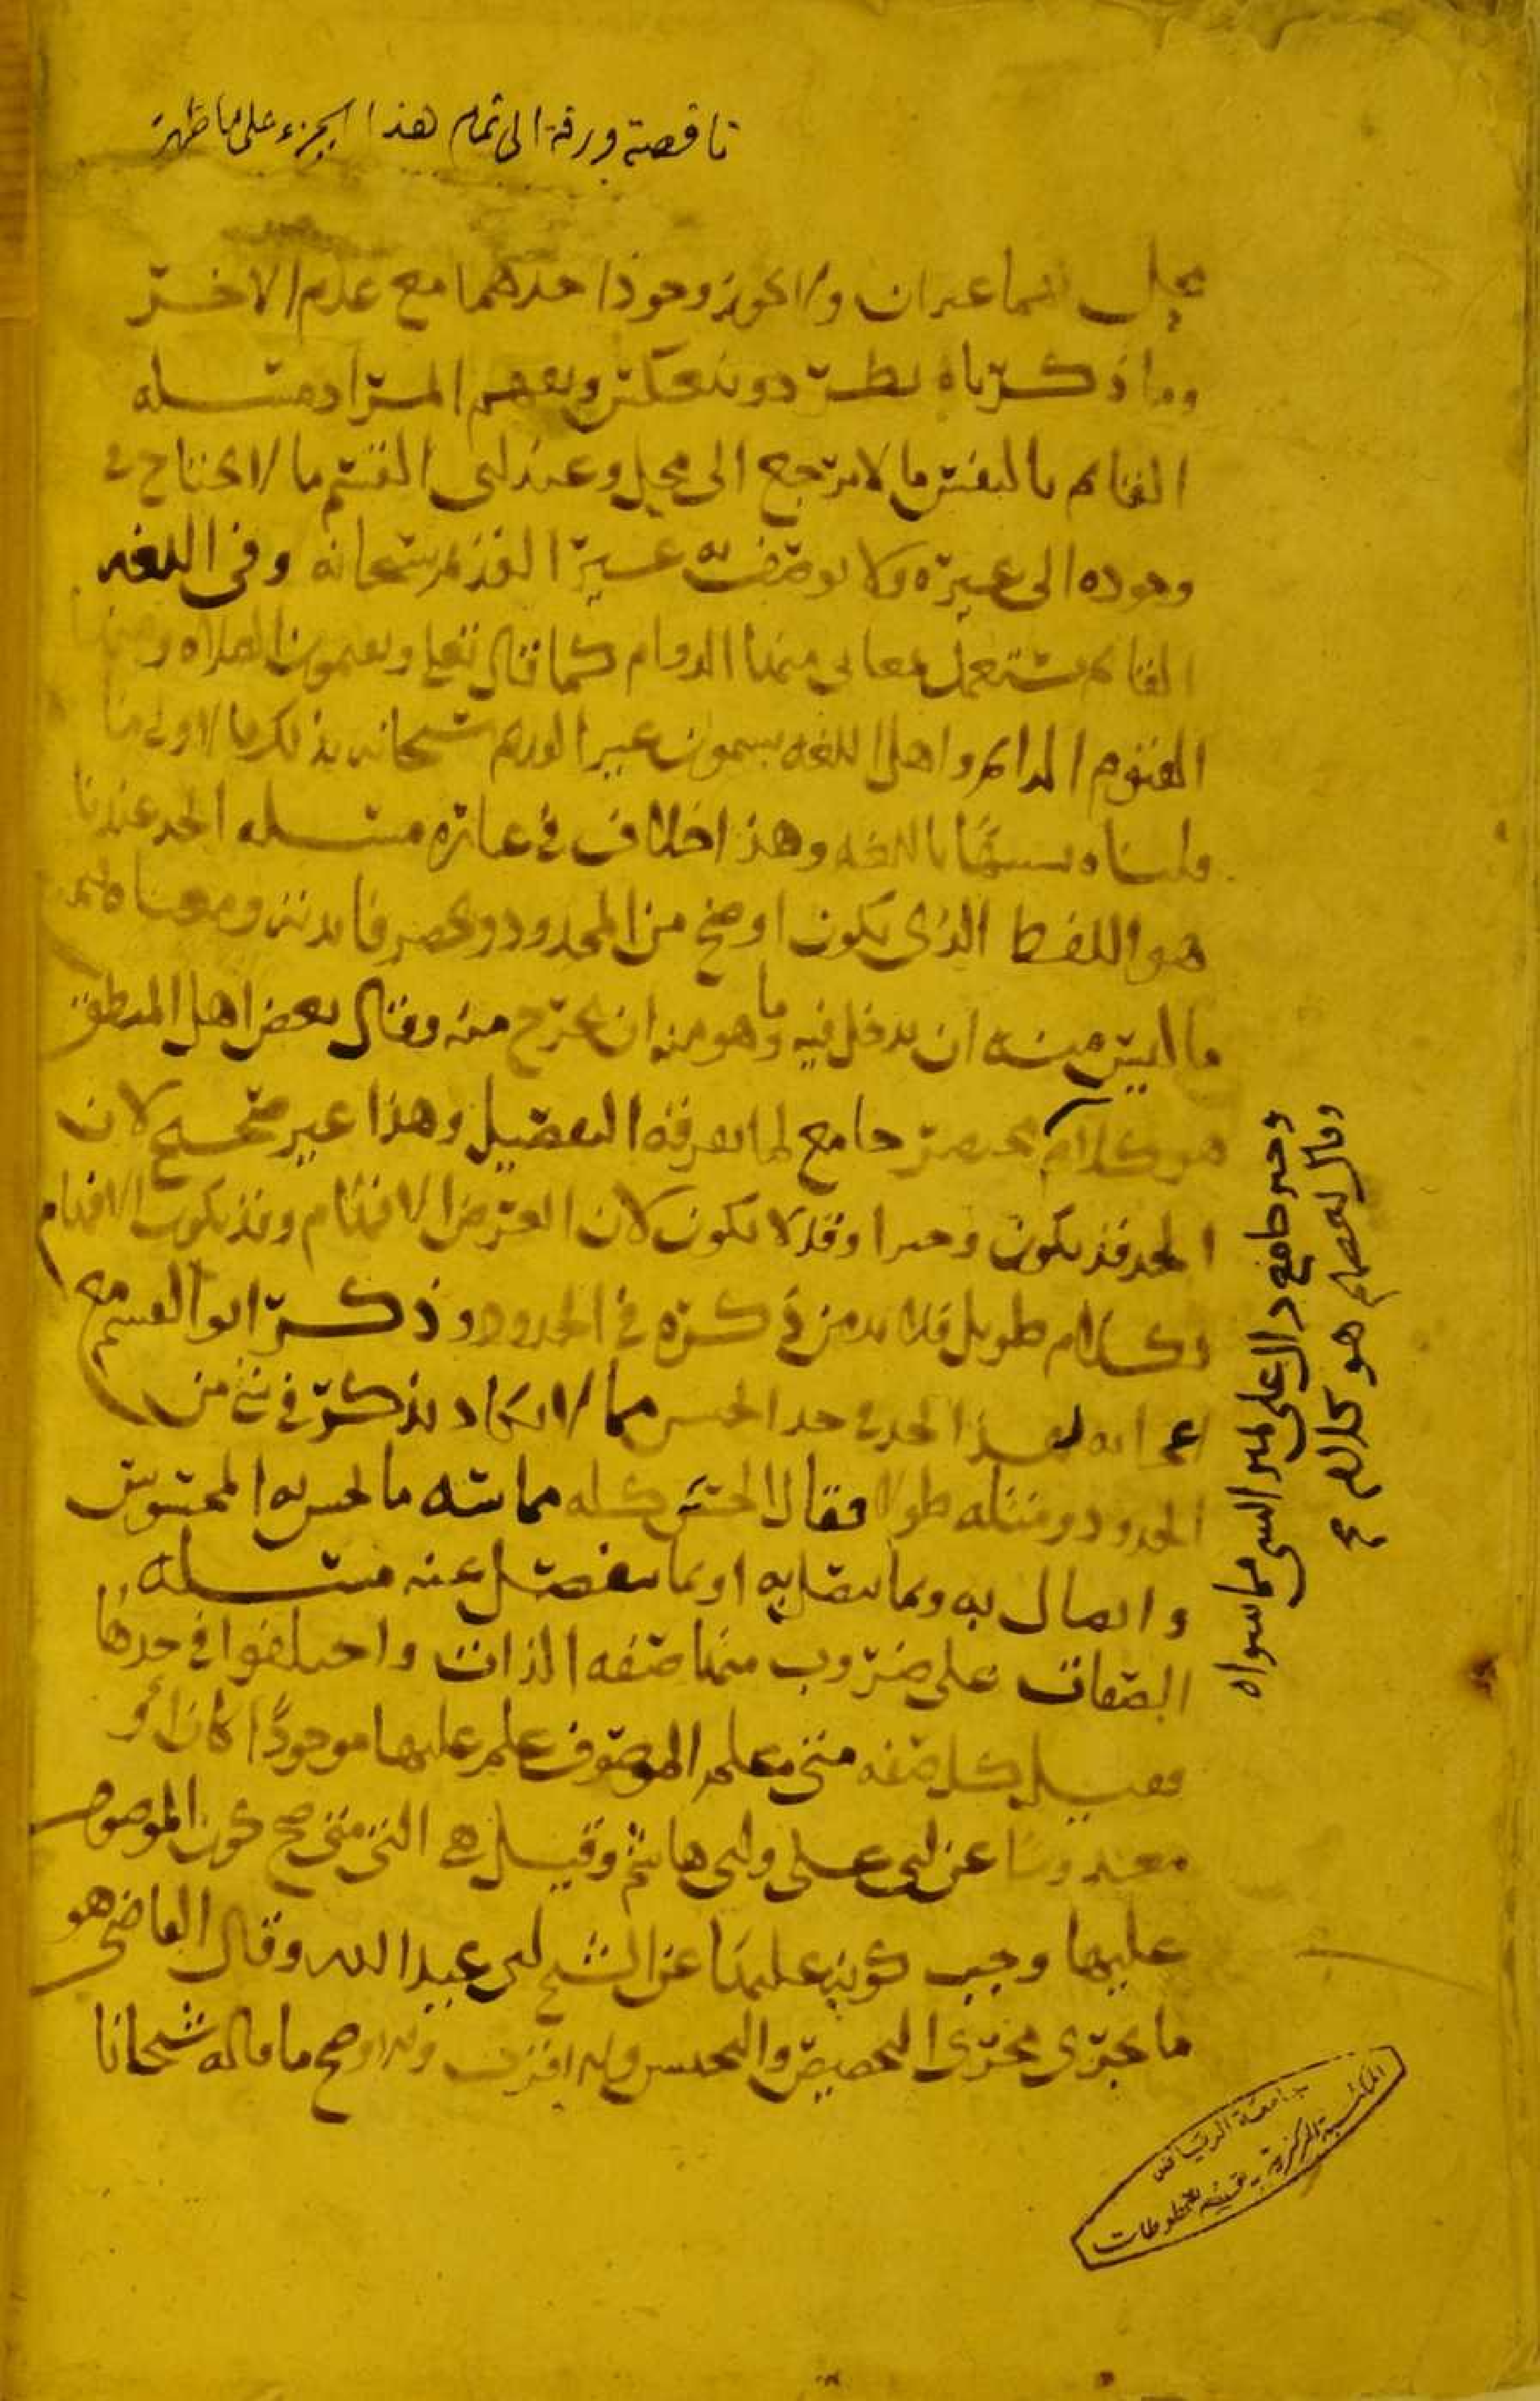 ناقصة ورقة الى تمام هذا الجزء على ما ظهر
محل انهما غيران ولا يجوز وجود احدهما مع عدم الاخر
وما ذكرناه يطرد وينعكس وبعضهم المراد مسله
القائم بالنفس ما لا يرجع الى محل وعند ابى القسم ما لا يحتاج فى
وجوده الى غيره ولا يوصف به غير القديم سبحانه وفى اللغه
القائم يستعمل بمعانى منها الدوام كما قال تعلى ويقيمون الصلاه ومنها
القيوم الدائم واهل اللغه يسمون غير القديم سبحانه بذلك
وليناه بالغه وهذا خلاف فى عباره مسله الحد عندنا
هو اللفظ الذى يكون اوضح من المحدود ويحصر فائدته ومعناه
ما ليس منه ان يدخل فيه وما هو منه ان يخرج منه وقال بعض اهل المنطق
هو كلام مختصر جامع لما يفرقه التفصيل وهذا غير صحيح لان
الحد قد يكون وجيزا وقد لا يكون لان الغرض الافهام وقد يكون الافهام
بكلام طويل فلا بد من ذكره فى الحدود وذكر ابو القسم مع
الحد فى حد الحس مما لا يكاد يذكر فى شى من
الحدود ومثله طولا فقال الحس كله مماسه ما لحس به المحسوس
واتصال به وبما يتصل به او بما ينفصل عنه مسله
الصفات على ضروب منها صفه الذات واختلفوا فى حدها
فقيل كل صفه متى علم الموصوف علم عليها موجودا كان او
معدوما عن ابى على وابى هاشم وقيل هى التى متى صح كون الموصوف
عليها وجب كونه عليها عن الشيخ ابى عبدالله وقال القاضى هو
ما يجرى مجرى التخصيص والتجنيس وقد اوضح ما قاله شيخانا
وقال بعضهم هو كلام
وجيز جامع دال على تميز الشى مما سواه
جامعة الرياض
المكتبة المركزية - قسم المخطوطات